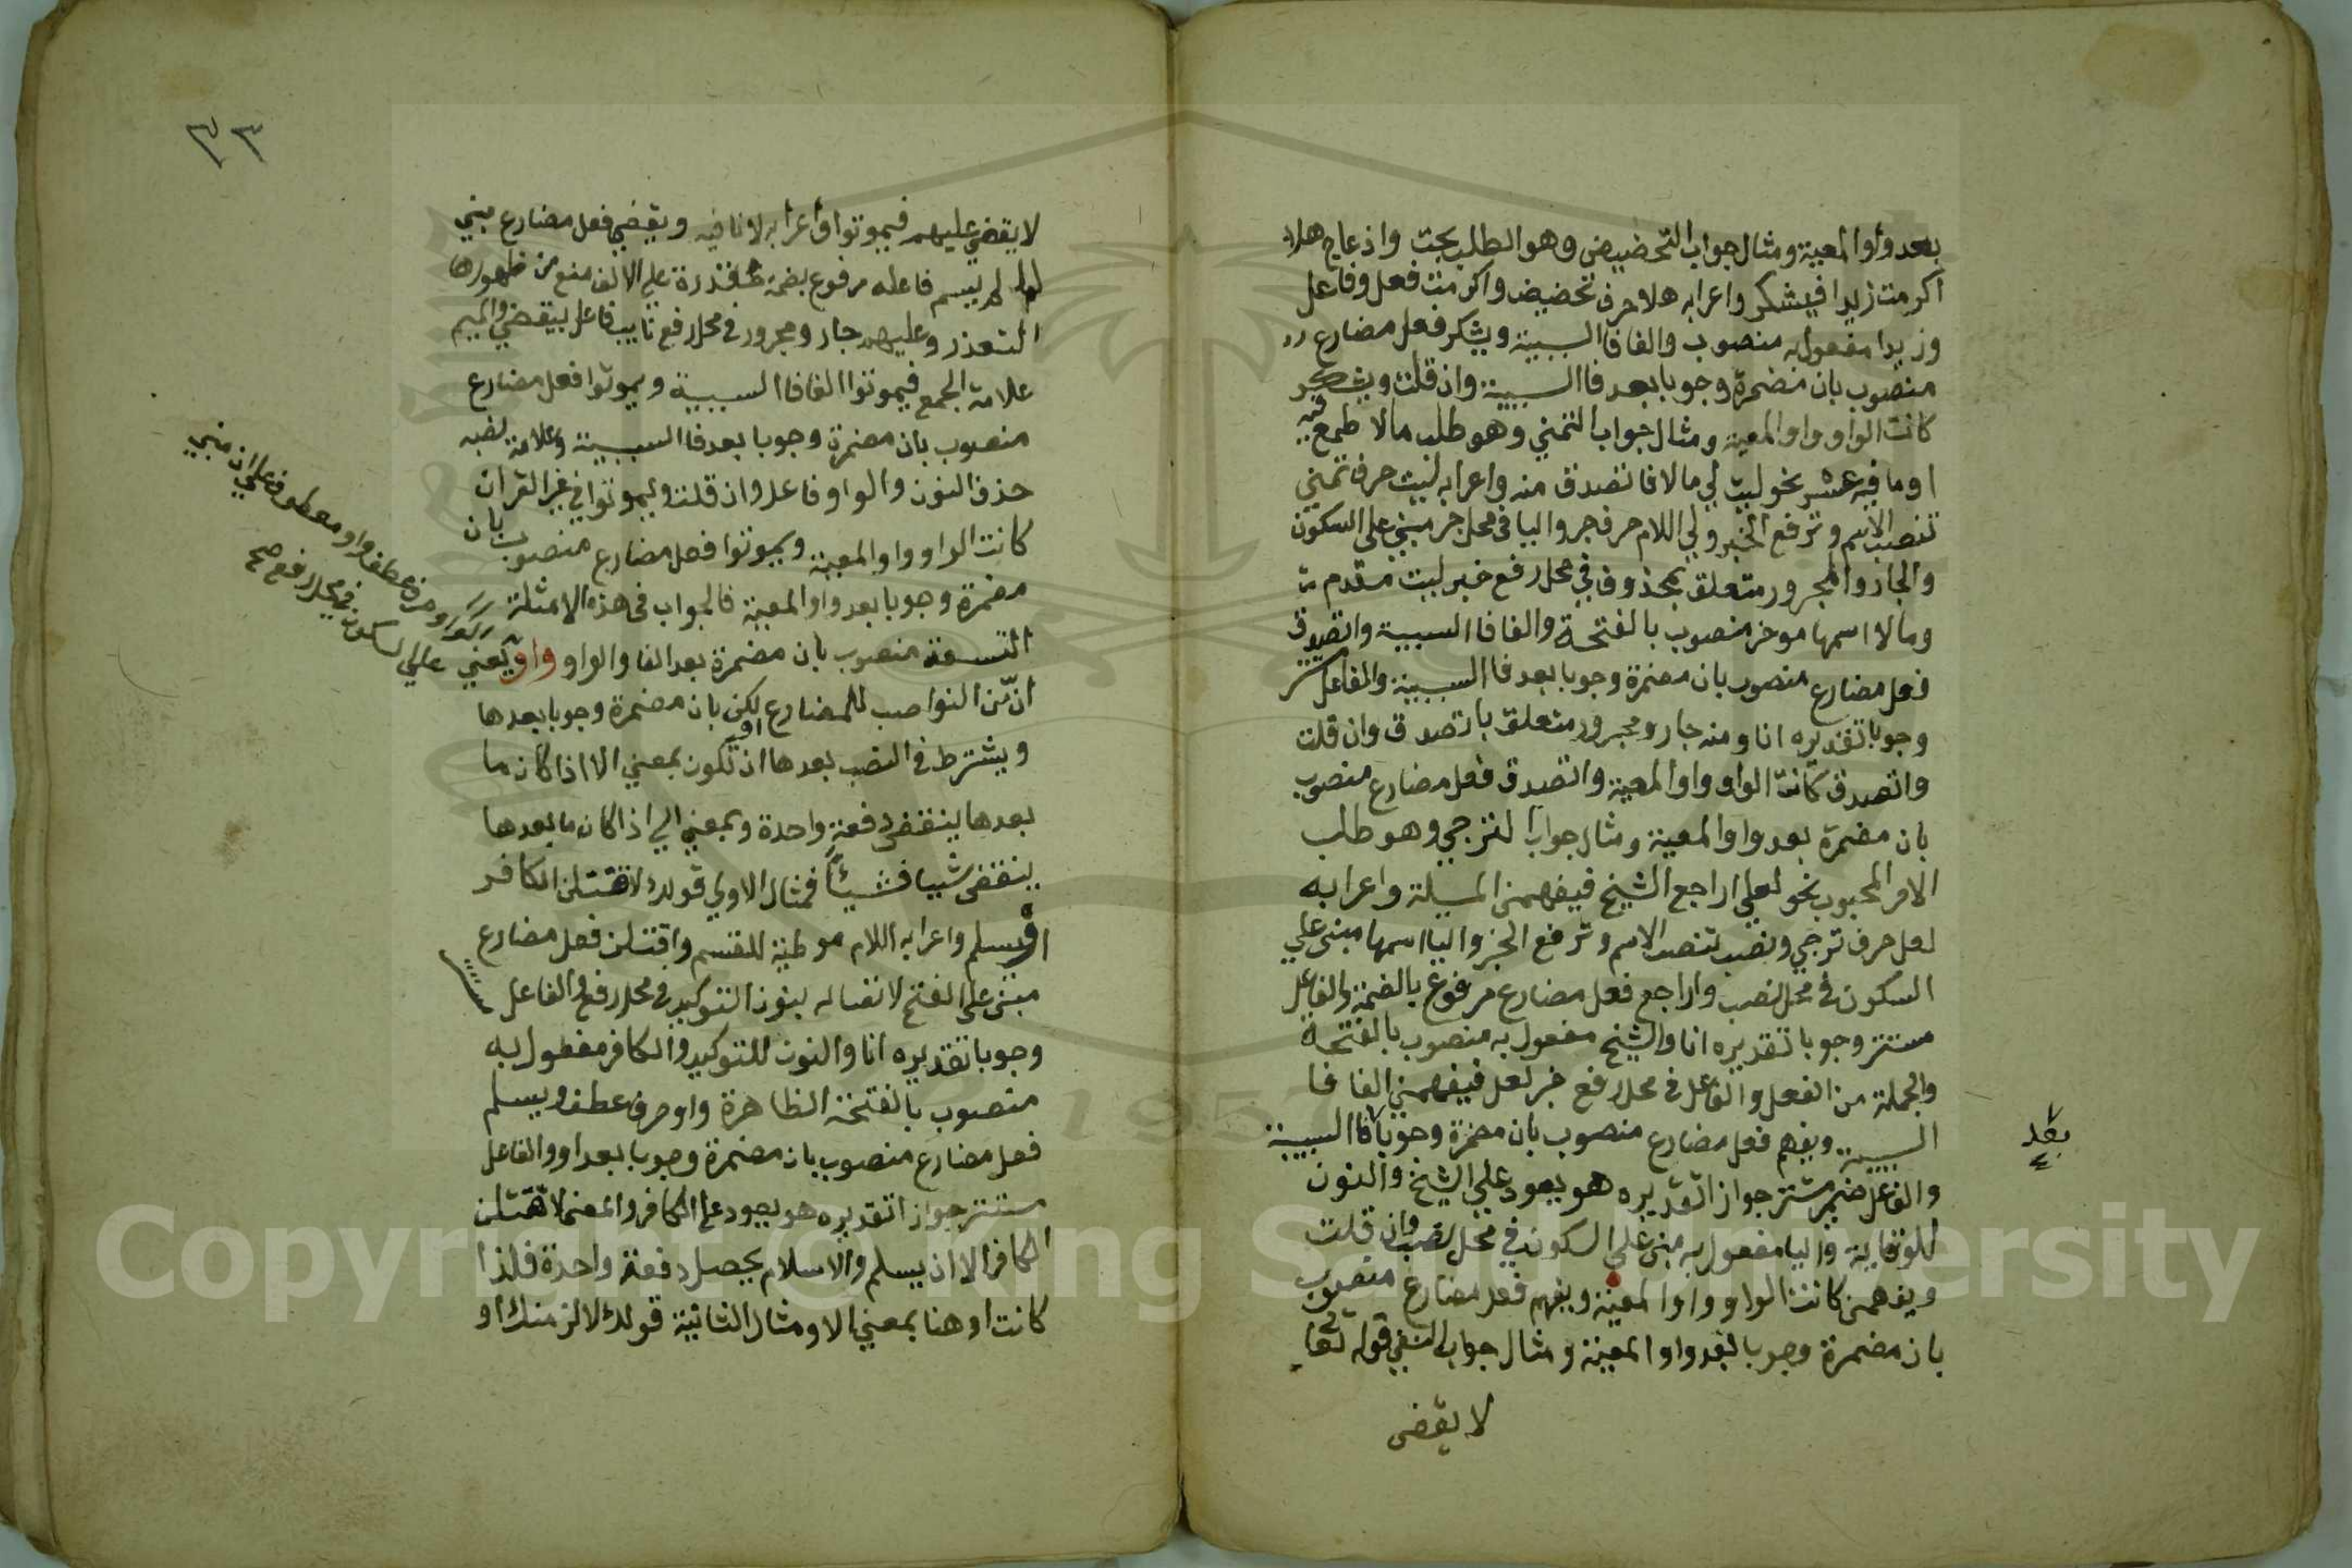 بعد واو المعية ومثال جواب التحضيض وهو الطلب بحث وازعاج هلا
اكرمت زيدا فيشكر واعرابه هلا حرف تحضيض واكرمت فعل وفاعل
وزيدا مفعول به منصوب والفا فا السببية ويشكر فعل مضارع
منصوب بان مضمرة وجوبا بعد فا السببية وان قلت ويشكر
كانت الواو واو المعية ومثال جواب التمني وهو طلب مالا طمع فيه
او ما فيه عسر نحو ليت لي مالا فاتصدق منه واعرابه ليت حرف تمني
تنصب الاسم وترفع الخبر ولي اللام حرف جر واليا في محل جر مبني على السكون
والجار والمجرور متعلق بمحذوف في محل رفع خبر ليت مقدم
ومالا اسمها موخر منصوب بالفتحة والفا فا السببية واتصدق
فعل مضارع منصوب بان مضمرة وجوبا بعد فا السببية والفاعل
وجوبا تقديره انا ومنه جار ومجرور متعلق باتصدق وان قلت
واتصدق كانت الواو واو المعية واتصدق فعل مضارع منصوب
بان مضمرة بعد واو المعية ومثال جواب الترجي وهو طلب
الامر المحبوب نحو لعلي اراجع الشيخ فيفهمني المسيلة واعرابه
لعل حرف ترجي ونصب تنصب الاسم وترفع الخبر واليا اسمها مبني علي
السكون في محل نصب واراجع فعل مضارع مرفوع بالضمة والفاعل
مستتر وجوبا تقديره انا والشيخ مفعول به منصوب بالفتحة
والجملة من الفعل والفاعل في محل رفع خبر لعل فيفهمني الفا فا
السببية ويفهم فعل مضارع منصوب بان مضمرة وجوبا فا السببية
بعد
والفاعل ضمير مستتر جوازا تقديره هو يعود علي الشيخ والنون
للوقاية واليا مفعول به مبني علي السكون في محل نصب وان قلت
ويفهمني كانت الواو واو المعية ويفهم فعل مضارع منصوب
بان مضمرة وجوبا بعد واو المعية ومثال جواب النفي قوله تعا
لا يقضى
٣٣
لا يقضي عليهم فيموتوا واعرابه لا نافيه ويقضي فعل مضارع مبني
لما لم يسم فاعله مرفوع بضمة مقدرة علي الالف منع من ظهورها
التعذر وعليهم جار ومجرور في محل رفع نايب فاعل بيقضي والميم
علامة الجمع فيموتوا الفا فا السببية ويموتوا فعل مضارع
منصوب بان مضمرة وجوبا بعد فا السببية وعلامة نصبه
حذف النون والواو فاعل وان قلت ويموتوا في غير القران
كانت الواو واو المعية ويموتوا فعل مضارع منصوب بان
مضمرة وجوبا بعد واو المعية فالجواب في هذه الامثلة
التسعة منصوب بان مضمرة بعد الفا والواو واو يعني
ان من النواصب للمضارع لكن بان مضمرة وجوبا بعدها
ويشترط في النصب بعدها ان تكون بمعني الا اذا كان ما
بعدها ينقضي دفعة واحدة وبمعني الي اذا كان ما بعدها
ينقضي شييا فشيئا فمثال الاولي قولك لاقتلن الكافر
او يسلم واعرابه اللام موطية للقسم واقتلن فعل مضارع
مبني على الفتح لاتصاله بنون التوكيد في محل رفع والفاعل مستتر
وجوبا تقديره انا والنون للتوكيد والكافر مفعول به
منصوب بالفتحة الظاهرة واو حرف عطف ويسلم
فعل مضارع منصوب بان مضمرة وجوبا بعد او والفاعل
مستتر جوازا تقديره هو يعود على الكافر والمعنى لاقتلن
الكافر الا ان يسلم والاسلام يحصل دفعة واحدة فلذا
كانت او هنا بمعني الا ومثال الثانية قولك لالزمنك او
حرف عطف واو معطوف على ان مبني
علي السكون في محل رفع صح
Copyright © King Saud University
1957